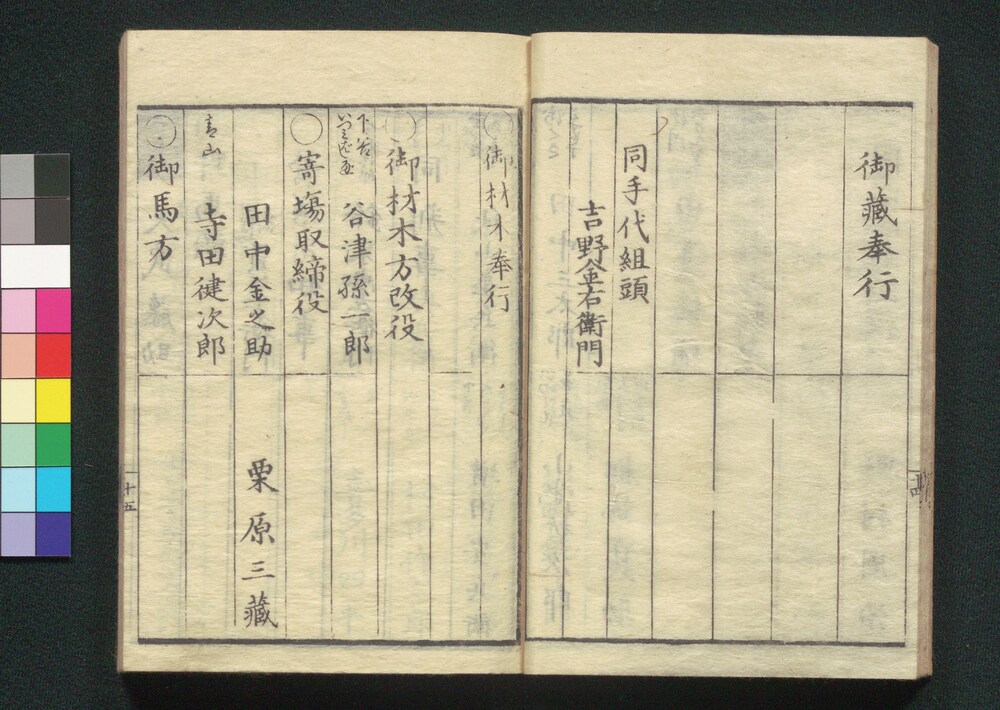 御藏奉行
同手代組頭
吉野金右衛門
〇御材木奉行
〇御材木方改役
下谷
谷津孫一郎
〇寄場取締役
田中金之助
栗原三藏
青山
寺田健次郎
〇御馬方
十五